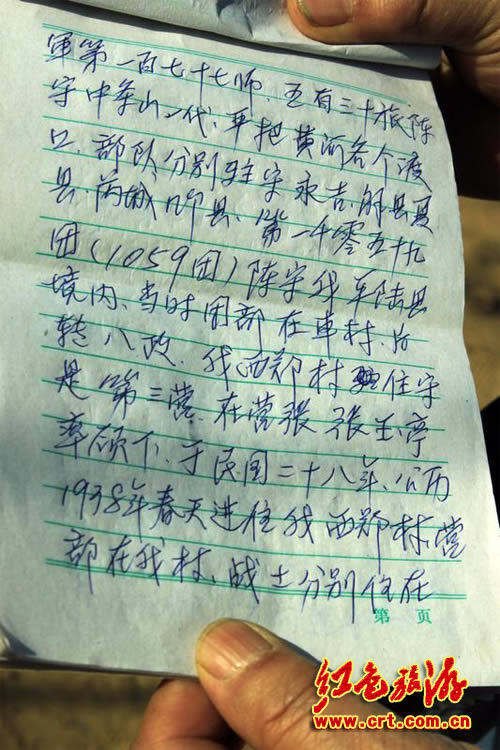 軍第一百七十七师、五有三十旅陈
守中条山一代、平把黄河各个渡
口、部队分别驻守永吉、解县夏
县、芮城、县、第一千零五十九
团（1059团）陈守我平陆县
境内、当时团部在車村、后
转八政、我西郑村驻住守
是第三营、在营张张玉亭
率领下、于民国二十八年、公历
1938年春天进住我西郑村、营
部在我村、战士分别住在
第 页
红色旅游
www.crt.com.cn